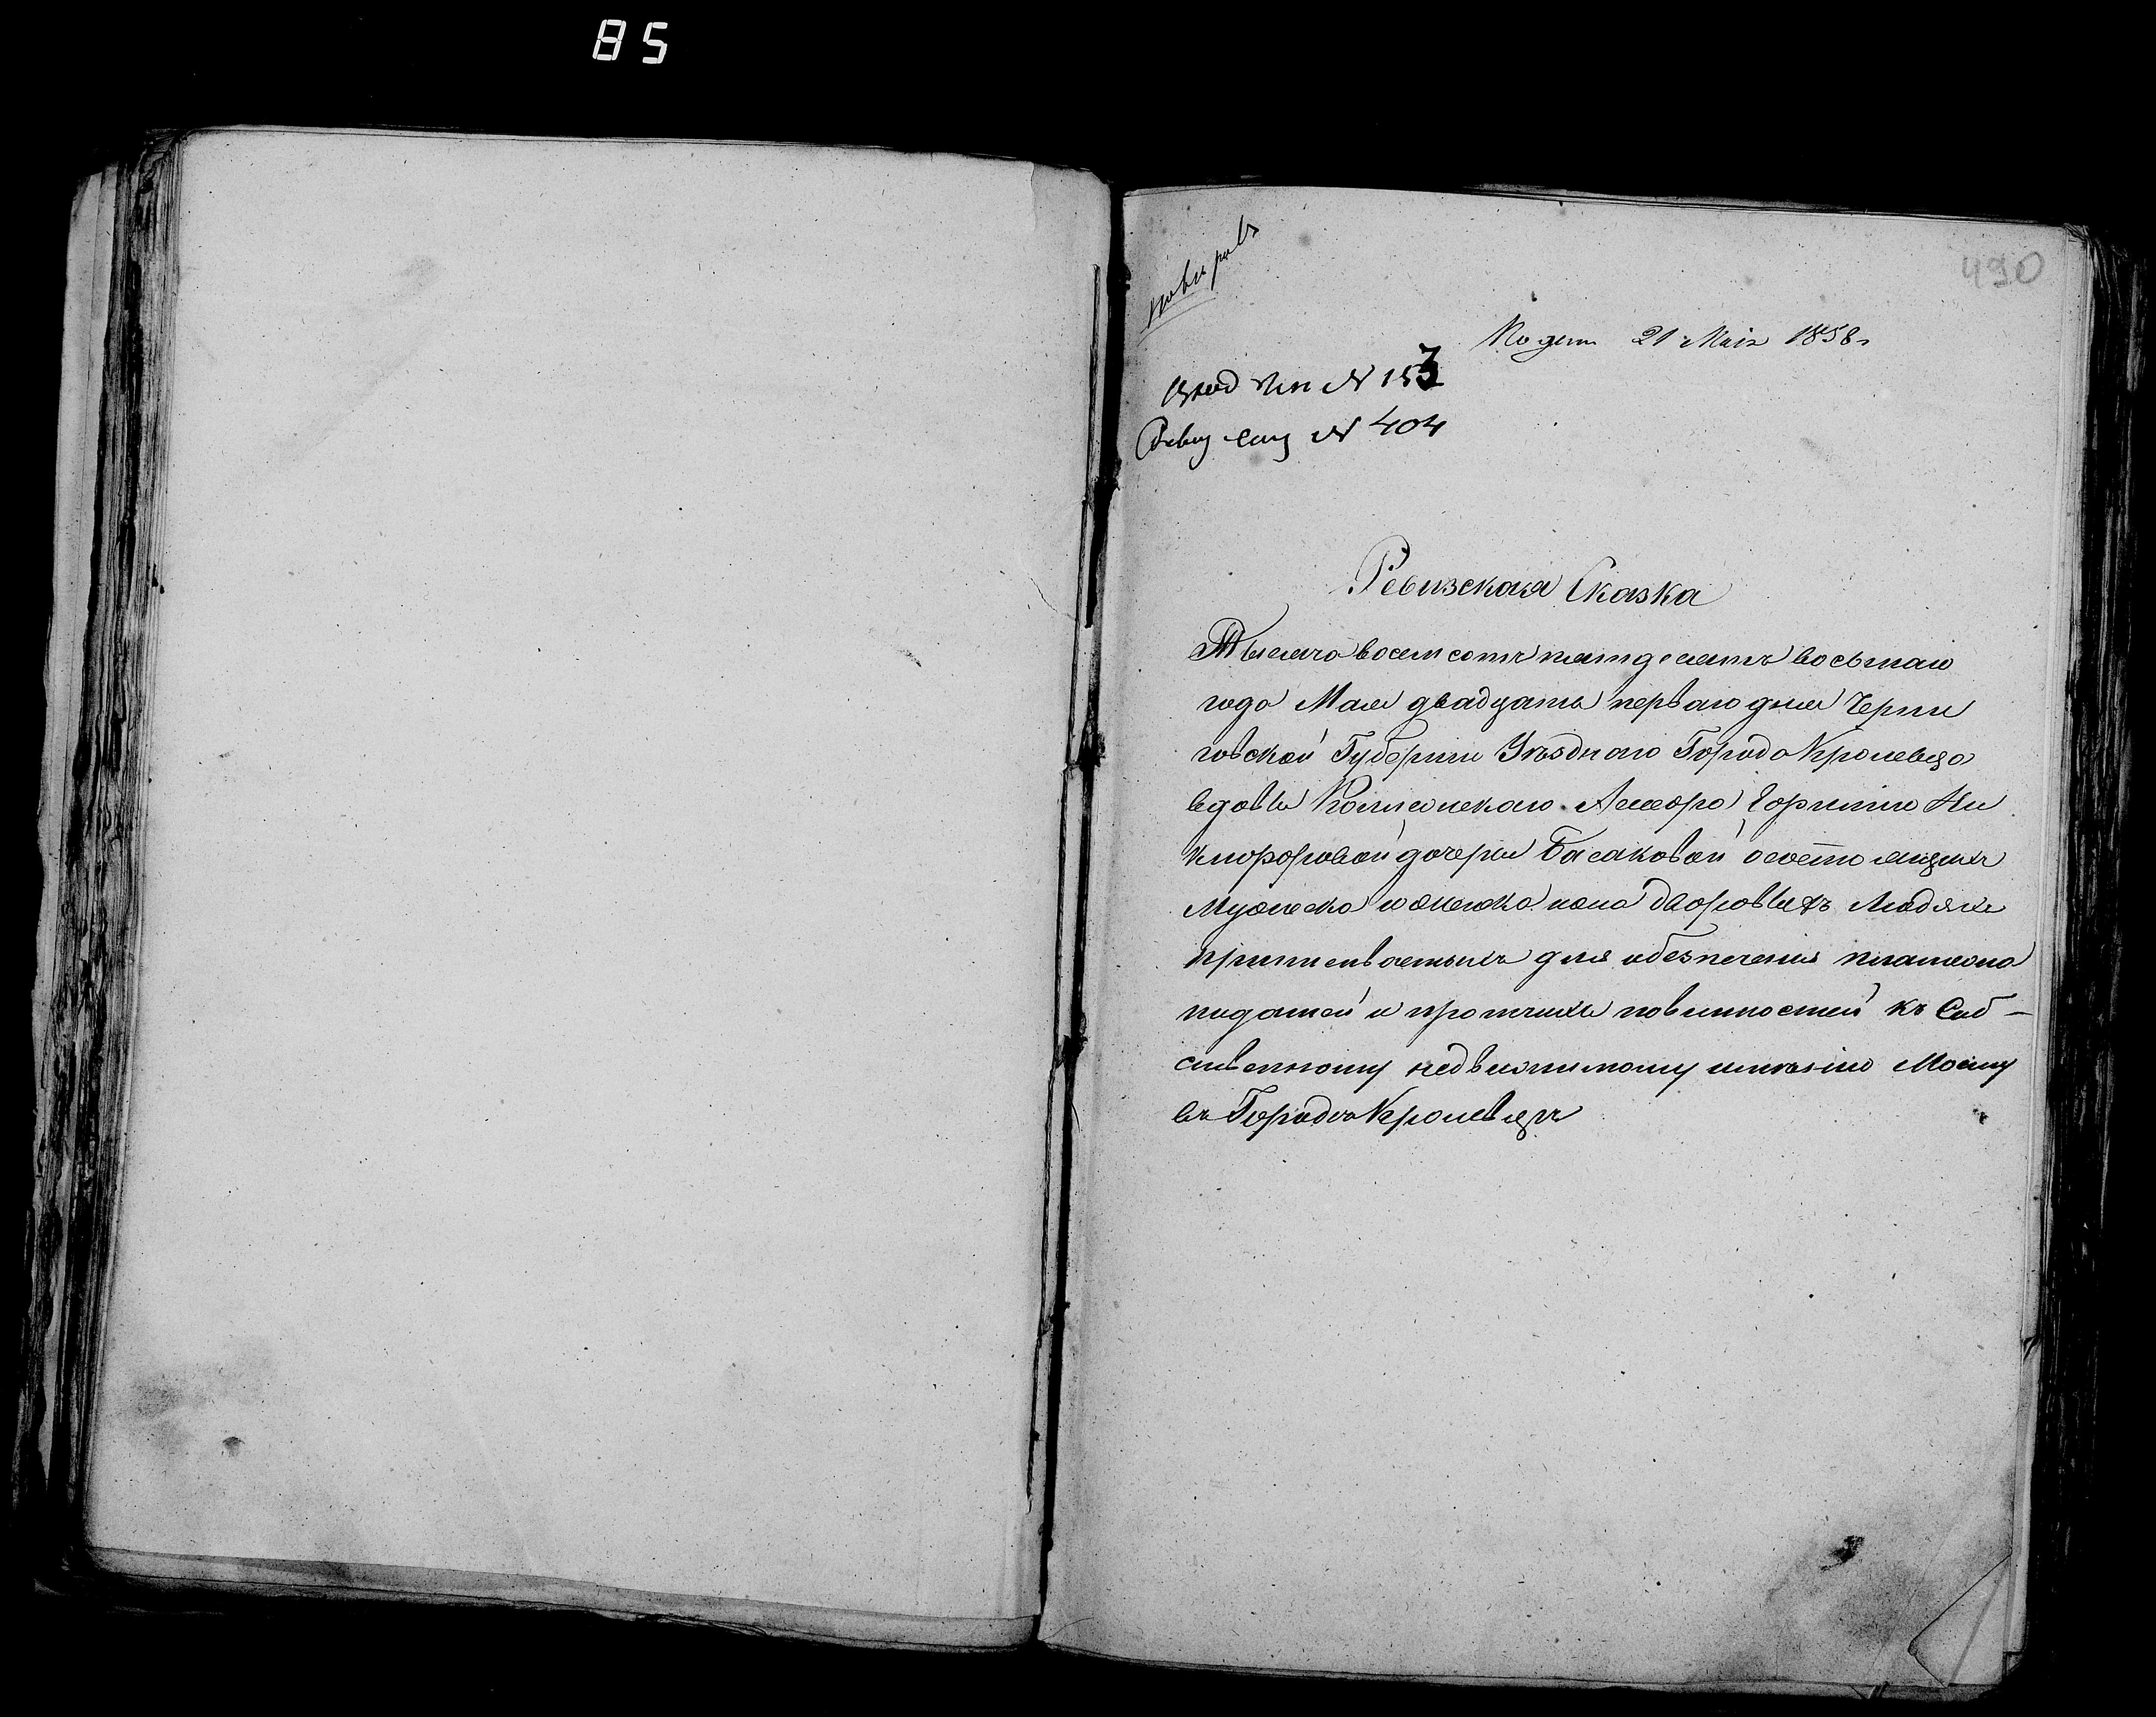 85
490
Подан 21 Мая 1858 г
Вход Жур № 153
Ревиз Скaз № 404
Ревизская Сказка
Тысяча восемсотъ пятдесятъ восьмаго
года Мая двадцать перваго дня Черни
говской Губерніи Уѣзднаго Города Кролевца
вдовы Колежскаго Асессора Ни
кифоровой дочери Басаковой о состоящихъ
Мужеска и женска пола дворовыхъ Людяхъ
приписываемыхъ для обезпеченія платежа
податей и протчихъ повинностей къ Соб-
ственному недвижимому имѣнію Моему
въ Городѣ Кролевцѣ